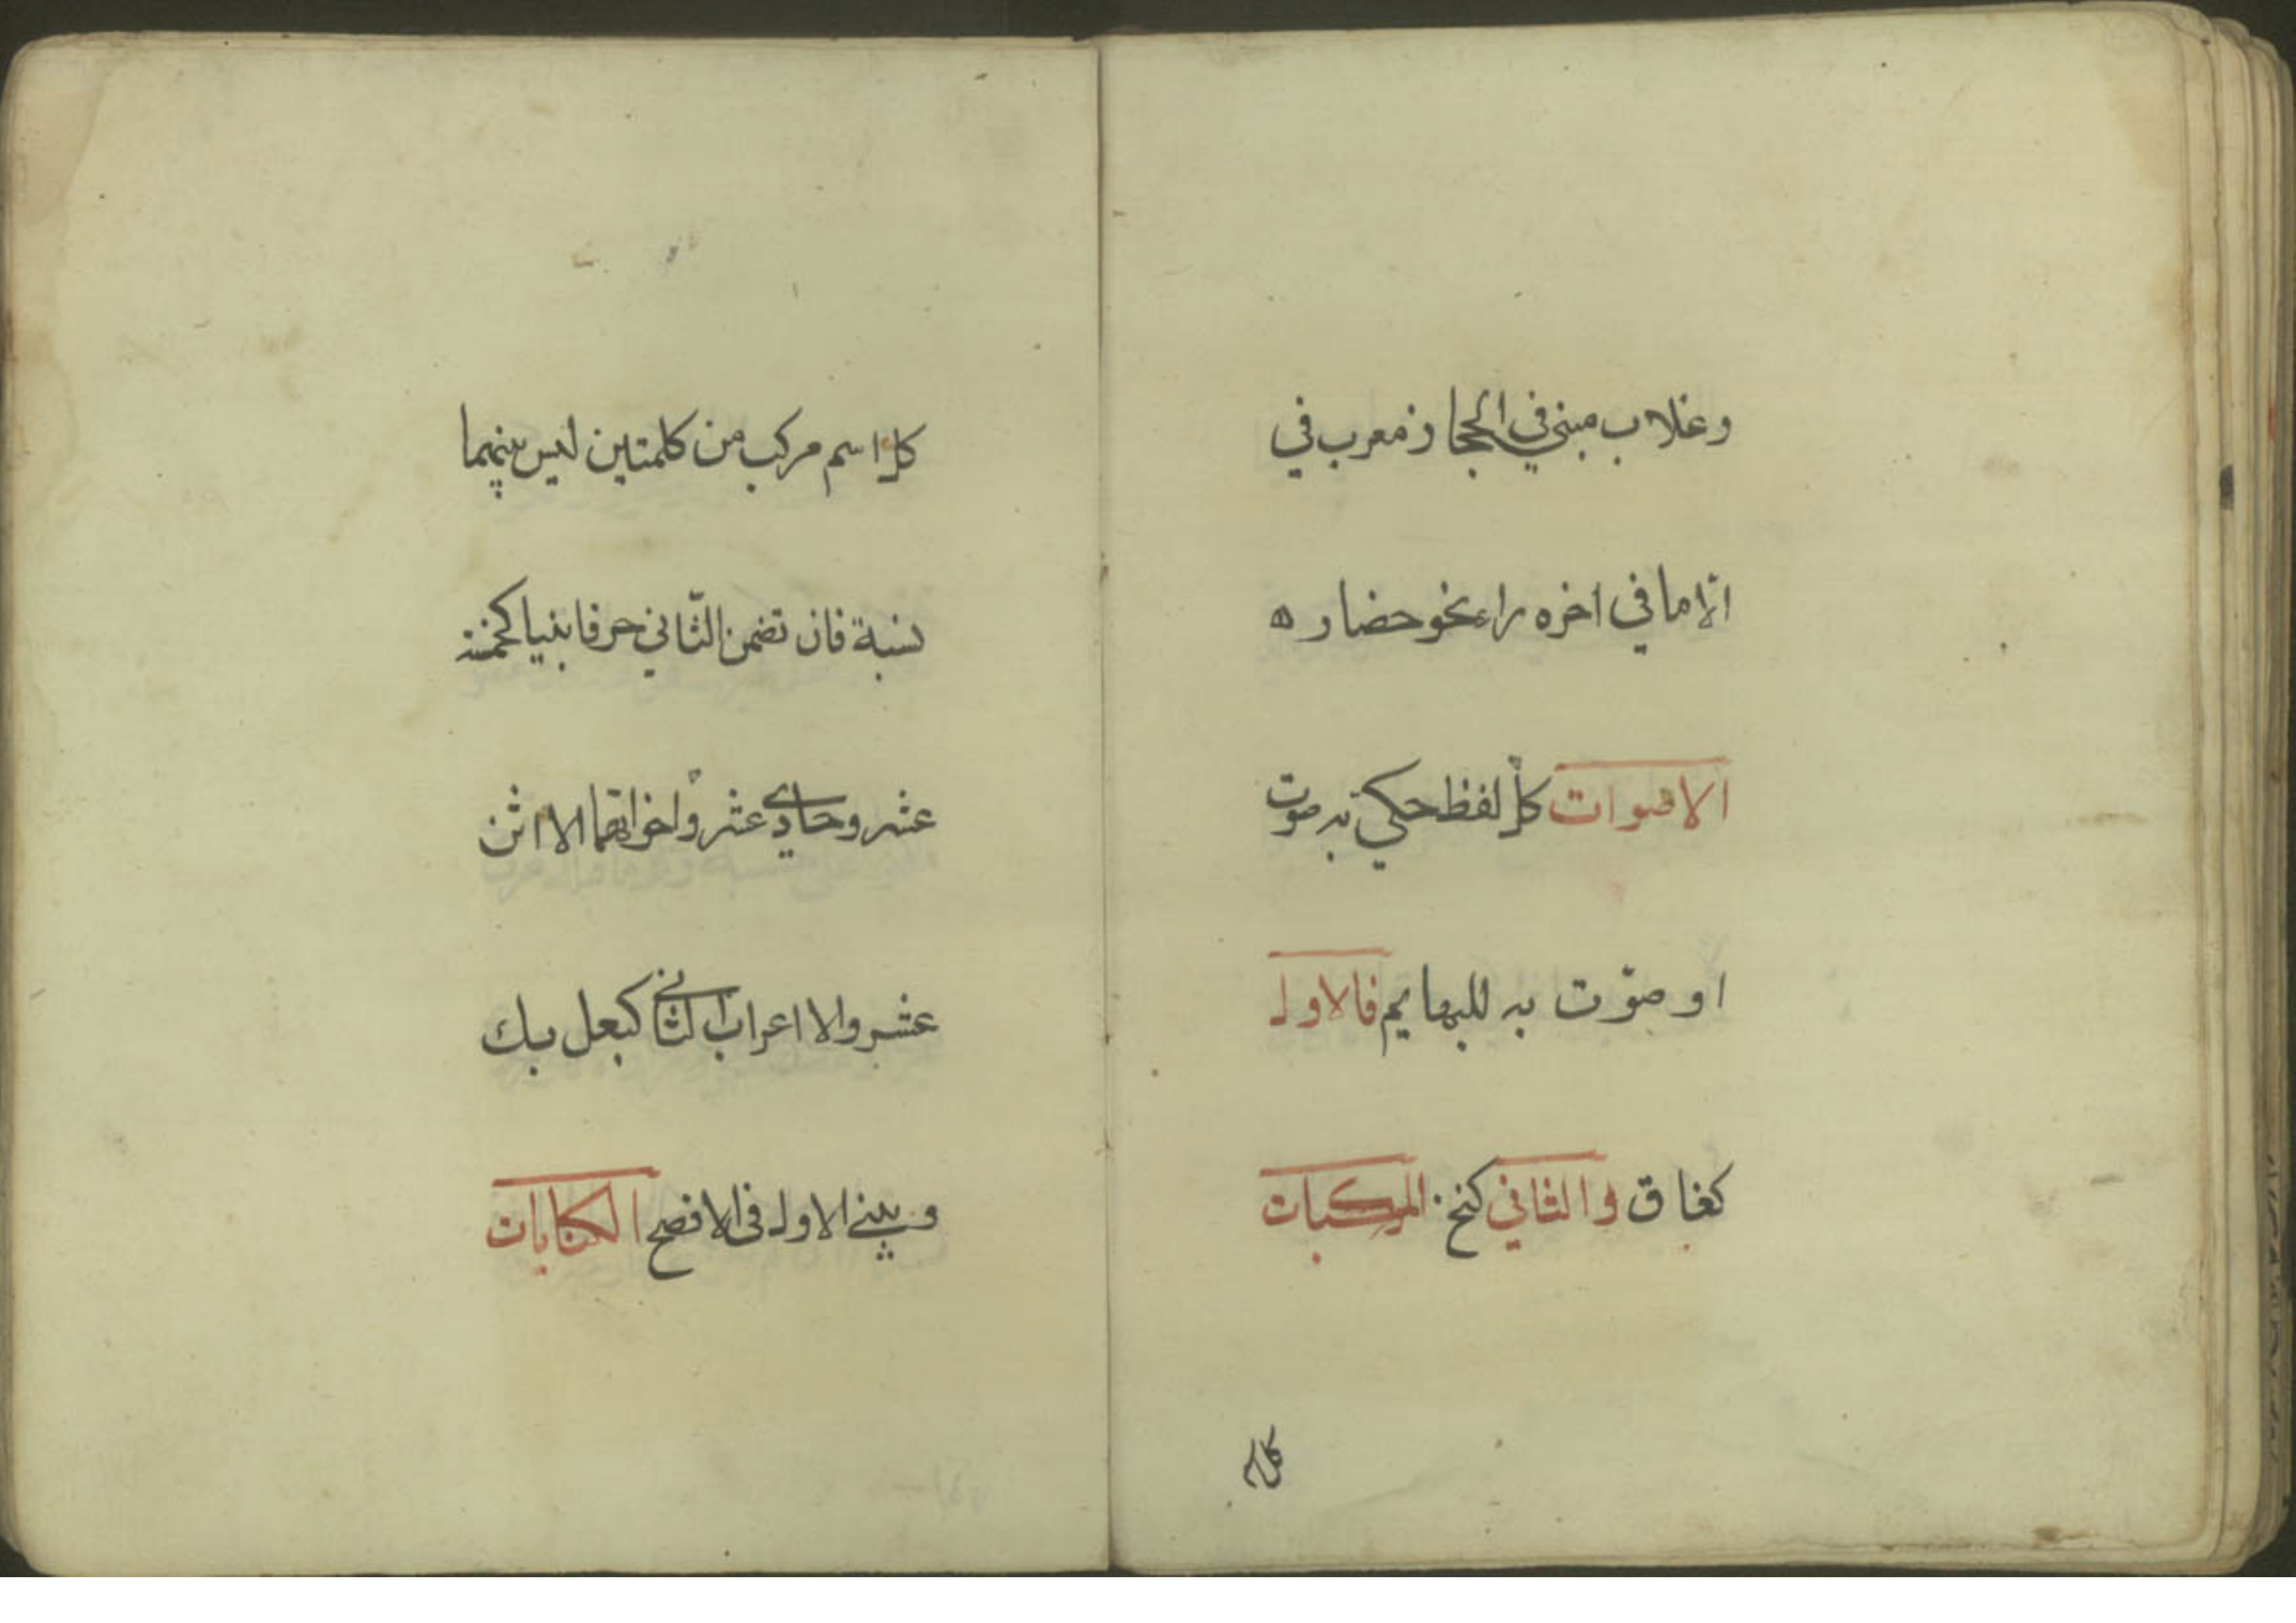 وغلاب مبني في الحجاز ومعرب في
الا ما في اخره راء نحو حضار ه
الاصوات كل لفظ حكي به صوت
او صوّت به للبهايم فالاول
كغاق والثاني كنخ المركبات
كل اسم
كل اسم مركب من كلمتين ليس بينهما
نسبة فان تضمن الثّاني حرفا بنيا كخمسة
عشر وحادي عشر واخواتهما الا اثن
عشر والا اعراب الثاني كبعل بك
ويبني الاول في الافصح الكنايات